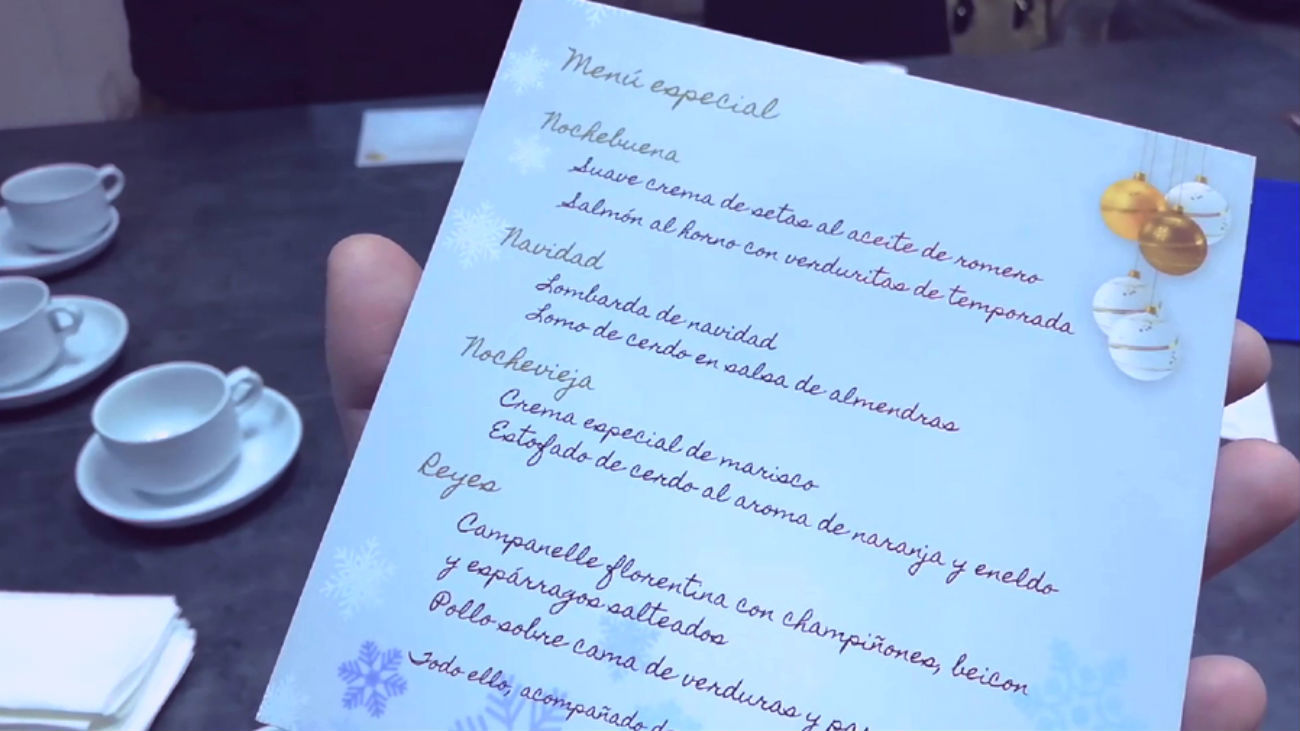 Menú especial
Nochebuena
Suave crema de setas al aceite de romero
Salmón al horno con verduritas de temporada
Navidad
Lombarda de navidad
Lomo de cerdo en salsa de almendras
Nochevieja
Crema especial de marisco
Estofado de cerdo al aroma de naranja y eneldo
Reyes
Campanelle florentina con champiñones, beicon
y espárragos salteados
Pollo sobre cama de verduras y
Todo ello, acompañado